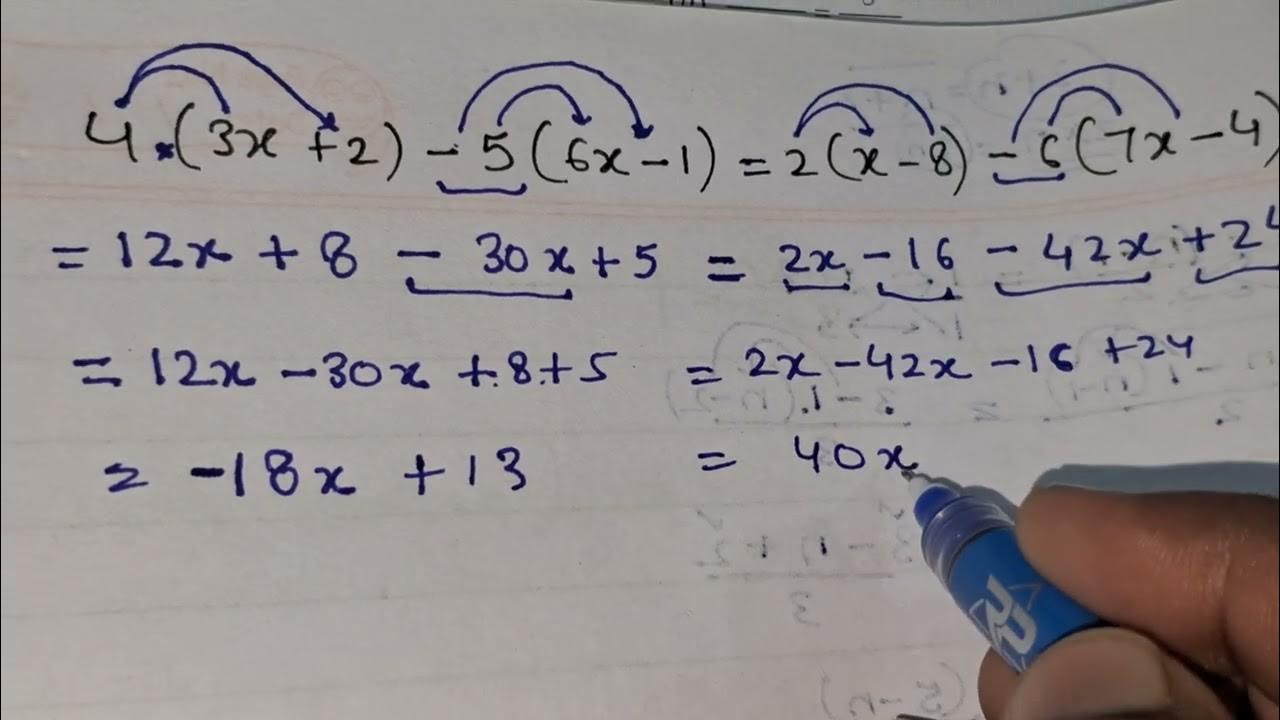 4.(3x + 2) - 5(6x - 1) = 2(x - 8) - 6(7x - 4)
= 12x + 8 - 30x + 5 = 2x - 16 - 42x + 24
= 12x - 30x + 8 + 5 = 2x - 42x - 16 + 24
= -18x + 13 = 40x